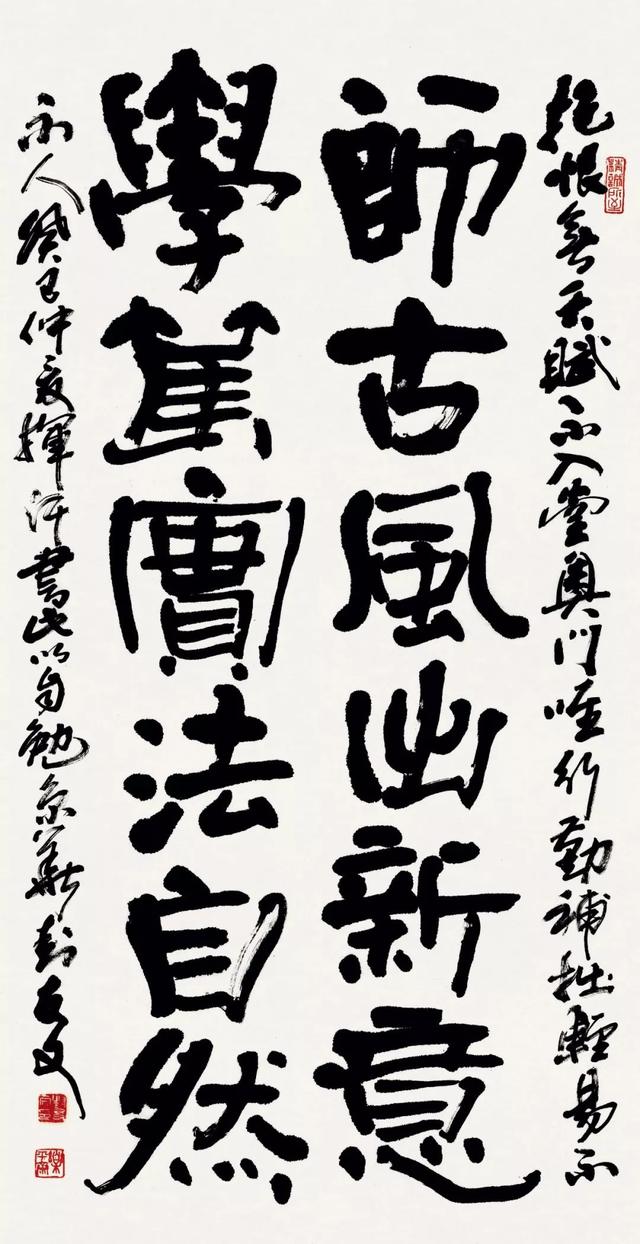 精誠所至
抱恨無天賦不入堂奧門唯行勤補拙輕易不
師古風出新意
學篤實法自然
示人癸巳仲夏揮汗書此以自勉京華